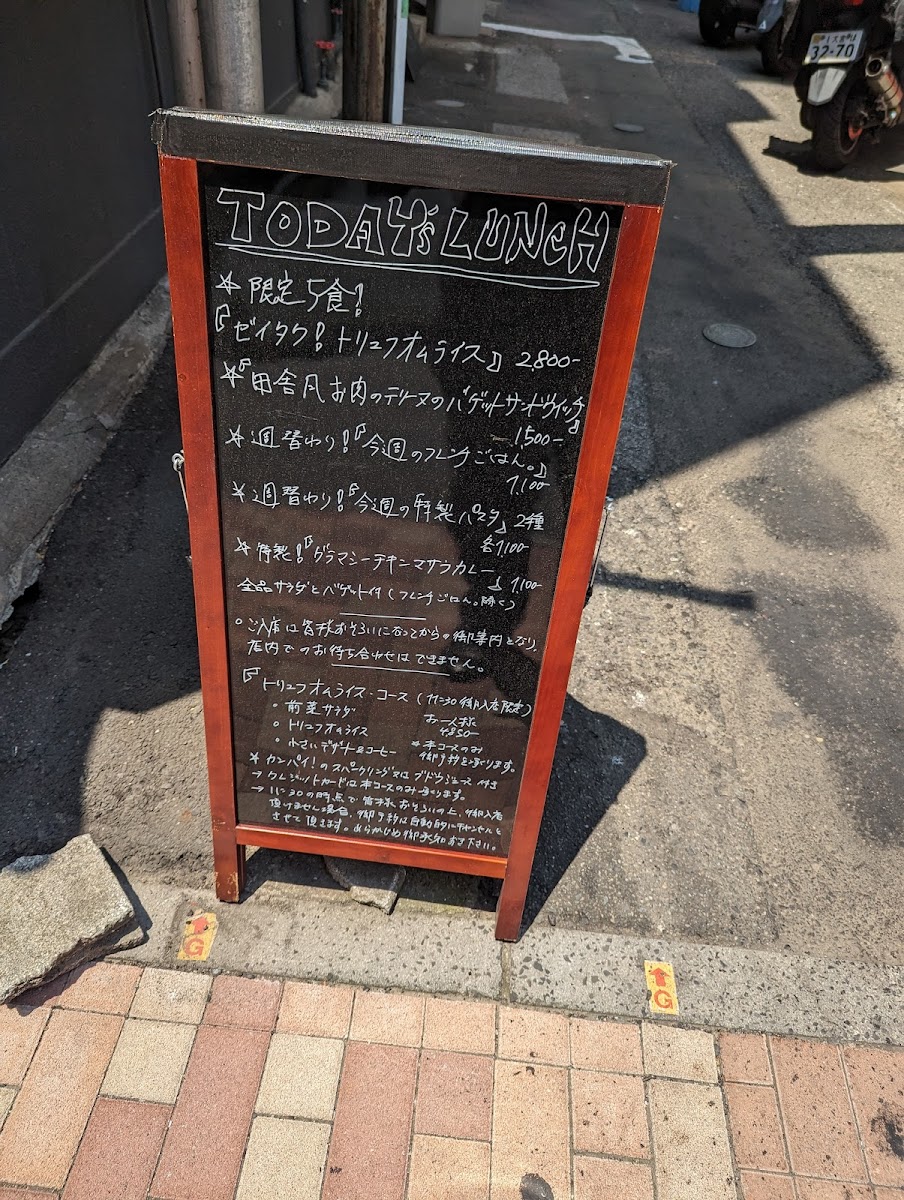 TODAY'S LUNCH
☆ 限定5食!
『ゼイタク! トリュフオムライス』 2800-
☆『田舎風お肉のテリーヌのバゲットサンドウィッチ』
1,500-
☆週替わり!『今週のフレンチごはん。』
1,100-
☆週替わり!『今週の特製パスタ』2種
各1,100-
☆特製!『グラマシーチキンマサラカレー』 1,100-
全品サラダとバゲット付(フレンチごはん。除く)
○ご入店は皆様おそろいになってからの御案内となり、
店内でのお待ち合わせはできません。
『トリュフオムライス・コース (11:30御入店限定)
○ 前菜サラダ お一人様
○ トリュフオムライス 4850-
○ 小さいデザート&コーヒー ※本コースのみ
御予約を承ります。
☆カンパイ!のスパークリング又はブドウジュース付き
→クレジットカードは本コースのみ承ります。
→11:30の時点で皆様おそろいの上、御入店
頂けません場合、御予約は自動的にキャンセルと
させて頂きます。あらかじめ御承知おき下さい。
32-70
G
G